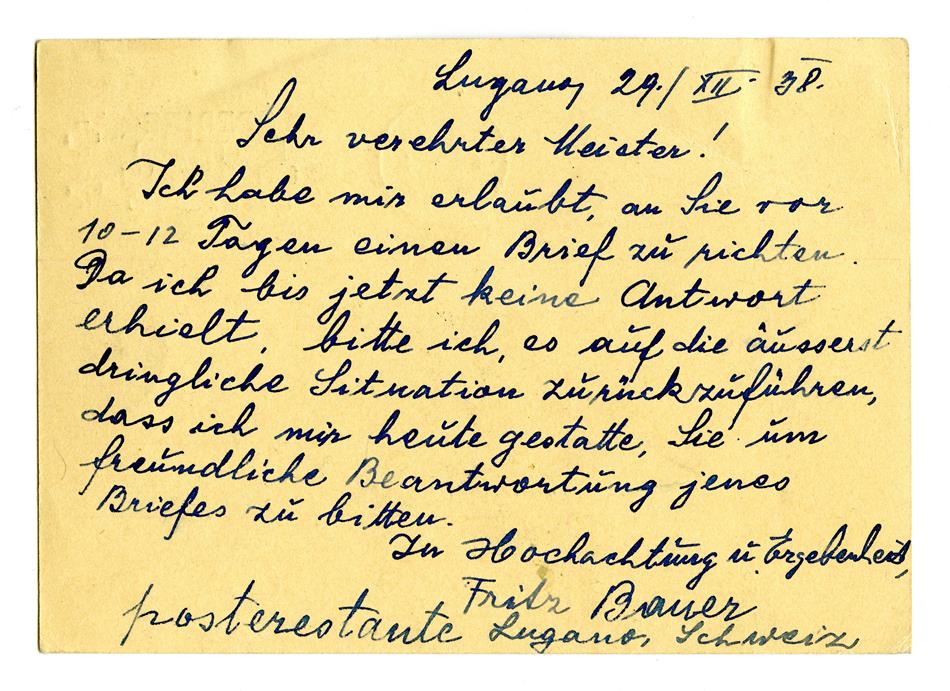 Lugano, 29./XII. 38.
Sehr verehrter Meister!
Ich habe mir erlaubt, an Sie vor
10-12 Tagen einen Brief zu richten.
Da ich bis jetzt keine Antwort
erhielt, bitte ich, es auf die äusserst
dringliche Situation zurückzuführen,
dass ich mir heute gestatte, Sie um
freundliche Beantwortung jenes
Briefes zu bitten.
In Hochachtung u. Ergebenheit,
Fritz Bauer
posterestante Lugano, Schweiz